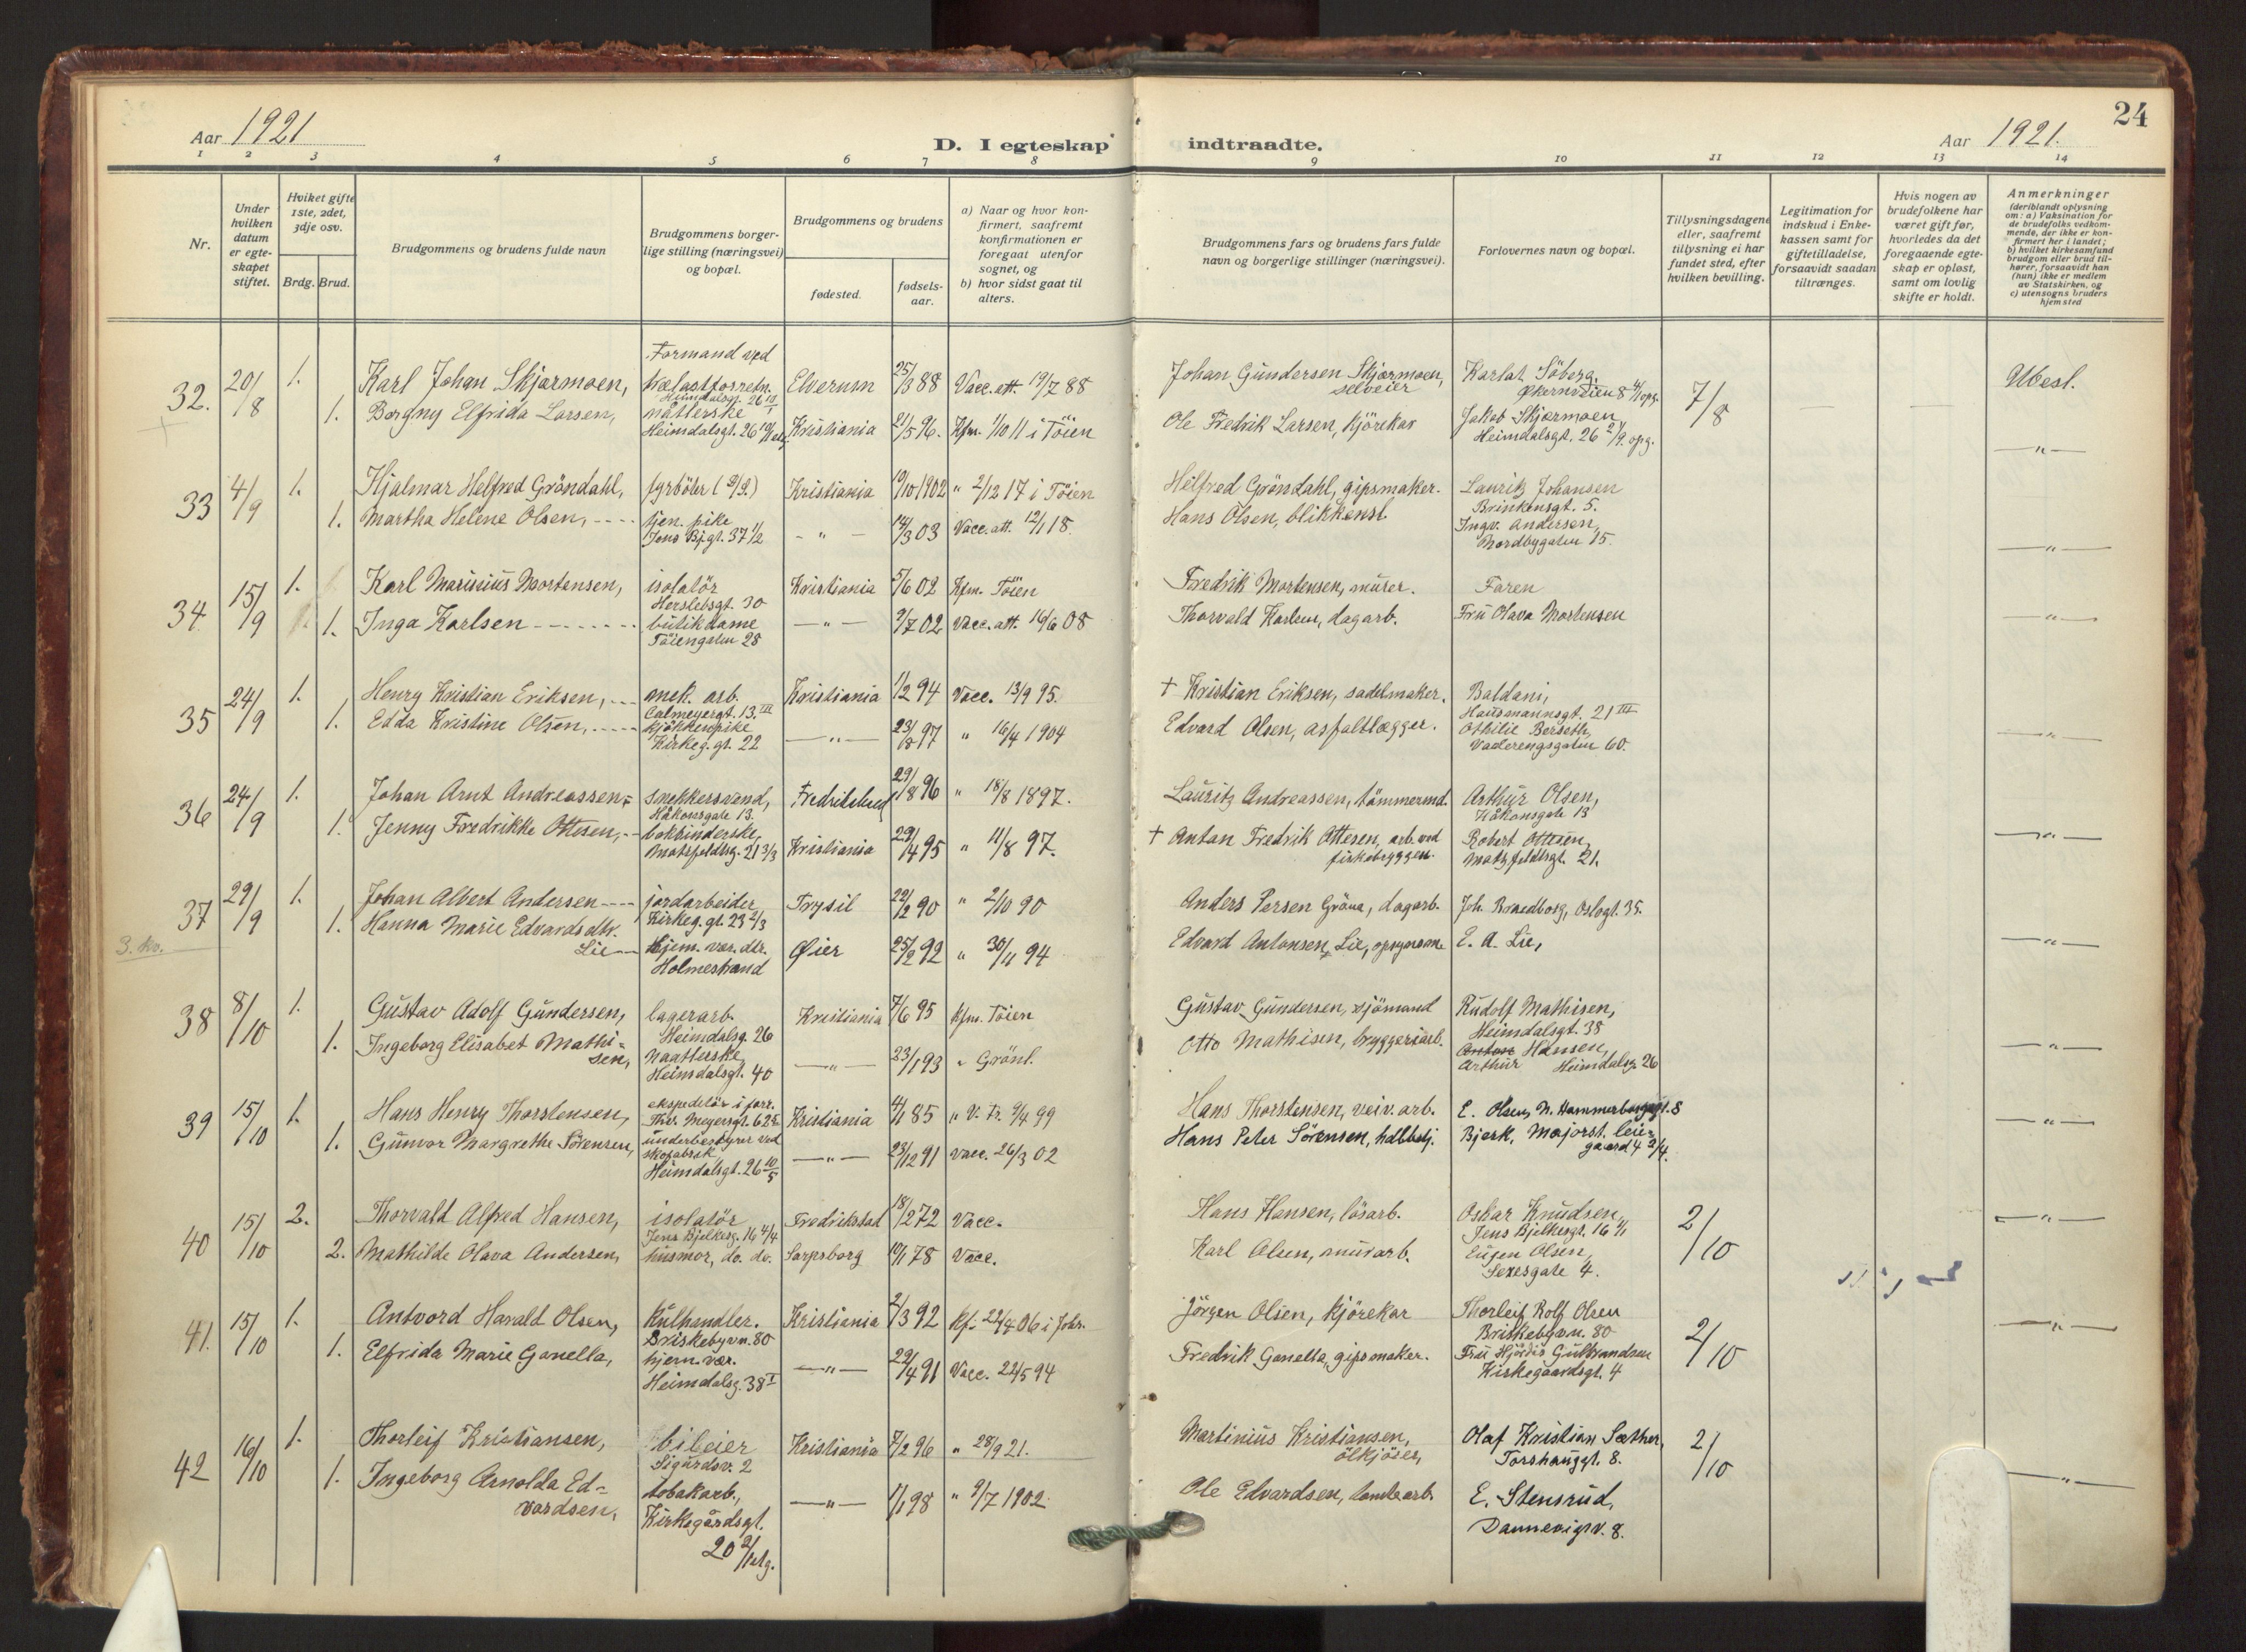 24
Aar 1921
D. I egteskap indtraadte.
Aar 1921.
1 2 3 4 5 6 7 8 9 10 11 12 13 14
Nr.
Under hvilken datum er egte- skapet stiftet.
Hviket gifte 1ste, 2det, 3dje osv.
Brdg. Brud.
Brudgommens og brudens fulde navn
Brudgommens borger- lige stilling (næringsvei) og bopæl.
Brudgommens og brudens
fødested.
fødsels- aar.
a) Naar og hvor kon- firmert, saafremt konfirmationen er foregaat utenfor sognet, og
b) hvor sidst gaat til alters.
Brudgommens fars og brudens fars fulde navn og borgerlige stillinger (næringsvei).
Forlovernes navn og bopæl.
Tillysningsdagene eller, saafremt tillysning ei har fundet sted, efter hvilken bevilling.
Legitimation for indskud i Enke- kassen samt for giftetilladelse, forsaavidt saadan tiltrænges.
Hvis nogen av brudefolkene har været gift før, hvorledes da det foregaaende egte- skap er opløst, samt om lovlig skifte er holdt.
Anmerkninger
(deriblandt oplysning om: a) Vaksination for de brudefolks vedkom- mende, der ikke er kon- firmert her i landet; b) hvilket kirkesamfund brudgom eller brud til- hører, forsaavidt han (hun) ikke er medlem av Statskirken, og c) utensogns bruders hjemsted
32. 20/8 1. Karl Johan Skjærmoen, Formand ved trælastforretn. Heimdalsg. 26 Elverum 25/3 88 Vacc. att. 19/7 88 Johan Gundersen Skjærmoen, selveier Søberg, 7/8 Ubesl.
1. Borgny Elfrida Larsen, Heimdalsgt. 26 Kristiania 21/5 96. Kfm. 1/10 11 i Töien Ole Fredrik Larsen, kjörekar Jakob Skjærmoen, Heimdalsgt. 26 — " —
33 4/9 1. Hjalmar Helfred Gröndahl, fyrböter Kristiania 19/10 1902 " 2/12 17 i Töien Helfred Gröndahl, gipsmaker. Lauritz Johansen Brinkensgt. 5.
1. Martha Helene Olsen, tjen. pike Jens Bj.gt. 37 — " — 14/3 03 Vacc. att. 12/1 18. Hans Olsen, blikkensl. Ingv. Andersen, Nordbygaten 15. — " —
34. 15/9 1. Karl Marinius Mortensen, isolatör Herslebsgt. 30 Kristiania 5/6 02 Kfm. Töien Fredrik Mortensen, murer. Faren
1. Inga Karlsen butikdame Töiengaten 28 — " — 9/7 02 Vacc. att. 16/6 08 Thorvald Karlsen, dagarb. Fru Olava Mortensen — " —
35 24/9 1. Henry Kristian Eriksen, mek. arb. Calmeyergt. 13. III Kristiania 1/2 94 Vacc. 13/9 95. † Kristian Eriksen, sadelmaker. Baldani, Hausmannsgt. 21 III
1. Edda Kristine Olsen, kjökkenpike Kirkeg. gt. 22 — " — 23/8 97 " 16/4 1904 Edvard Olsen, asfaltlægger. Othilie Berseth, Vaalerengsgaten 60. — " —
36 24/9 1. Johan Arnt Andreassen, snekkersvend, Håkonsgate 13. 29/8 96 " 18/8 1897. Lauritz Andreassen, tömmermd. Arthur Olsen, Håkonsgate 13
1. Jenny Fredrikke Ottesen, bokbinderske, Kristiania 29/4 95 " 11/8 97. † Anton Fredrik Ottesen, arb. ved fiskebryggen. Robert Ottesen, 21. — " —
37 29/9 1. Johan Albert Andersen jordarbeider Kirkeg. gt. 23 2/3 Trysil 22/2 90 " 2/10 90 Anders Persen Gröna, dagarb. Joh. Oslogt. 35.
3. kv. 1. Hanna Marie Edvardsdtr. Lie Hjem. vær. dtr. Holmestrand Øier 25/2 92 " 30/11 94 Edvard Antonsen Lie, E. A. Lie, — " —
38 8/10 1. Gustav Adolf Gundersen, lagerarb. Heimdalsg. 26 Kristiania 7/6 95 Kfm. Töien Gustav Gundersen, sjömand Rudolf Mathisen, Heimdalsgt. 38
1. Ingeborg Elisabet Mathi= sen, Naatlerske, Heimdalsgt. 40 — " — 23/1 93 " Grönl. Otto Mathisen, bryggeriarb. Anton Hansen, Arthur Heimdalsg. 26 — " —
39 15/10 1. Hans Henry Thorstensen, ekspeditör i forr. Thv. Meyersgt. Kristiania 4/1 85 " V. Fr. 9/4 99 Hans Thorstensen, veiv. arb. E. Olsen, N. Hammerborggt. 8
1. Gunvor Margrethe Sörensen, underbestyrer ved skofabrik, Heimdalsgt. 26 10/5 — " — 23/12 91 Vacc. 26/3 02 Hans Peter Sörensen, Bjerk, Majorst. leie- gaard 4 — " —
40 15/10 2. Thorvald Alfred Hansen, isolatör Jens Bjelkesg. 16 4/4 Fredrikstad 18/2 72 Vacc. Hans Hansen, lösarb. Oskar Knudsen, Jens Bjelkesgt. 16 2/10
2. Mathilde Olava Andersen, husmor, do. do. Sarpsborg 19/1 78 Vacc. Karl Olsen, murarb. Eugen Olsen, Sexesgate 4. — " —
41. 15/10 1. Antvord Harald Olsen, Kulhandler. Briskebyvn. 80 Kristiania 2/3 92 Jörgen Olsen, kjörekar Thorleif Rolf Olsen Briskebyvn. 80 2/10
1. Elfrida Marie Gonella, hjem. vær. Heimdalsg. 38 I — " — 22/4 91 Vacc. 22/5 94 Fredrik Gonella, gipsmaker. Fru Hjördis Gulbrandsen Kirkegaardsgt. 4 — " —
42 16/10 1. Thorleif Kristiansen, bileier Sigurdsv. 2 Kristiania 7/2 96 " 28/9 21. Martinius Kristiansen, ölkjörer, Olaf Kristian Sæther, Torshauggt. 8. 2/10
1. Ingeborg Arnolda Ed= vardsen, tobakarb., Kirkegårdsgt. 20 — " — 1/1 98 " 9/7 1902. Ole Edvardsen, E. Stensrud, Dannevigsv. 8. — " —